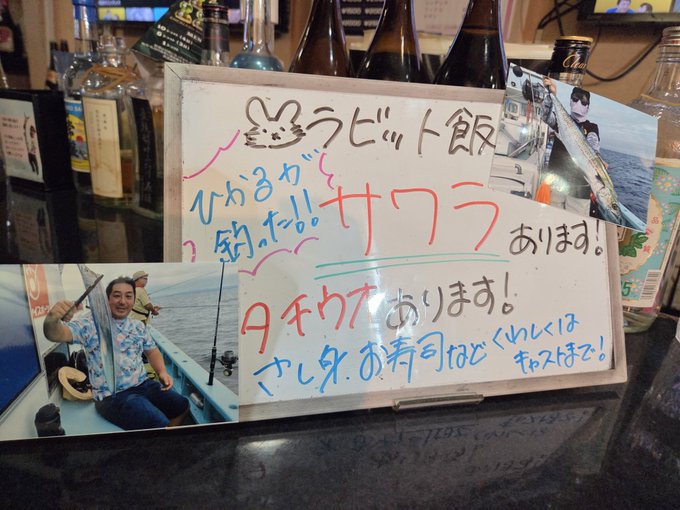 ラビット飯
ひかるが
釣った!!
サワラ
あります!
タチウオあります!
さし身、お寿司など
くわしくは
キャストまで!